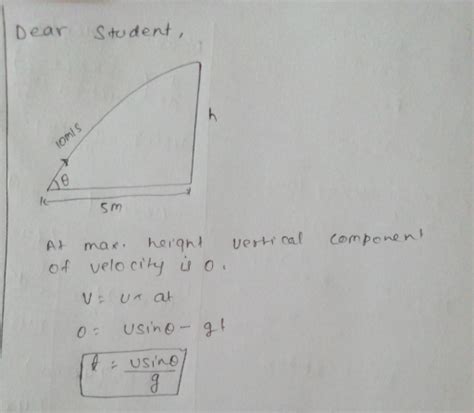 Dear Student,
10m/s
h
θ
5m
At max. height vertical component
of velocity is 0.
V = u + at
0 = usinθ - gt
t = usinθ/g